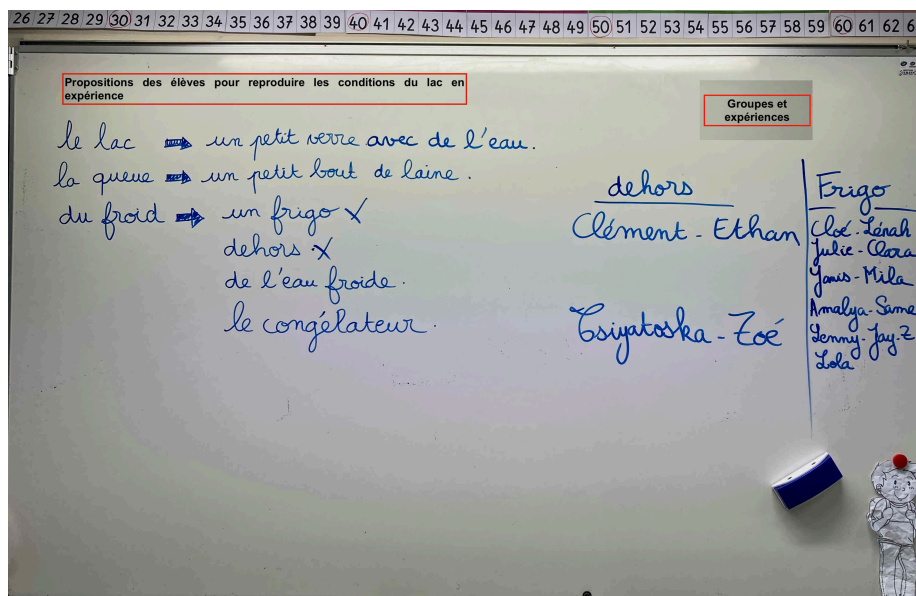 26 27 28 29 30 31 32 33 34 35 36 37 38 39 40 41 42 43 44 45 46 47 48 49 50 51 52 53 54 55 56 57 58 59 60 61 62 6
Propositions des élèves pour reproduire les conditions du lac en
expérience
le lac ⇒ un petit verre avec de l'eau.
la queue ⇒ un petit bout de laine.
du froid ⇒ un frigo X
dehors X
de l'eau froide.
le congélateur.
Groupes et
expériences
dehors
Clément - Ethan
Tsiyatoska - Zoé
Frigo
Cloé - Lénah
Julie - Clara
Yanis - Mila
Amalya - Same
Lenny - Jay-Z
Lola